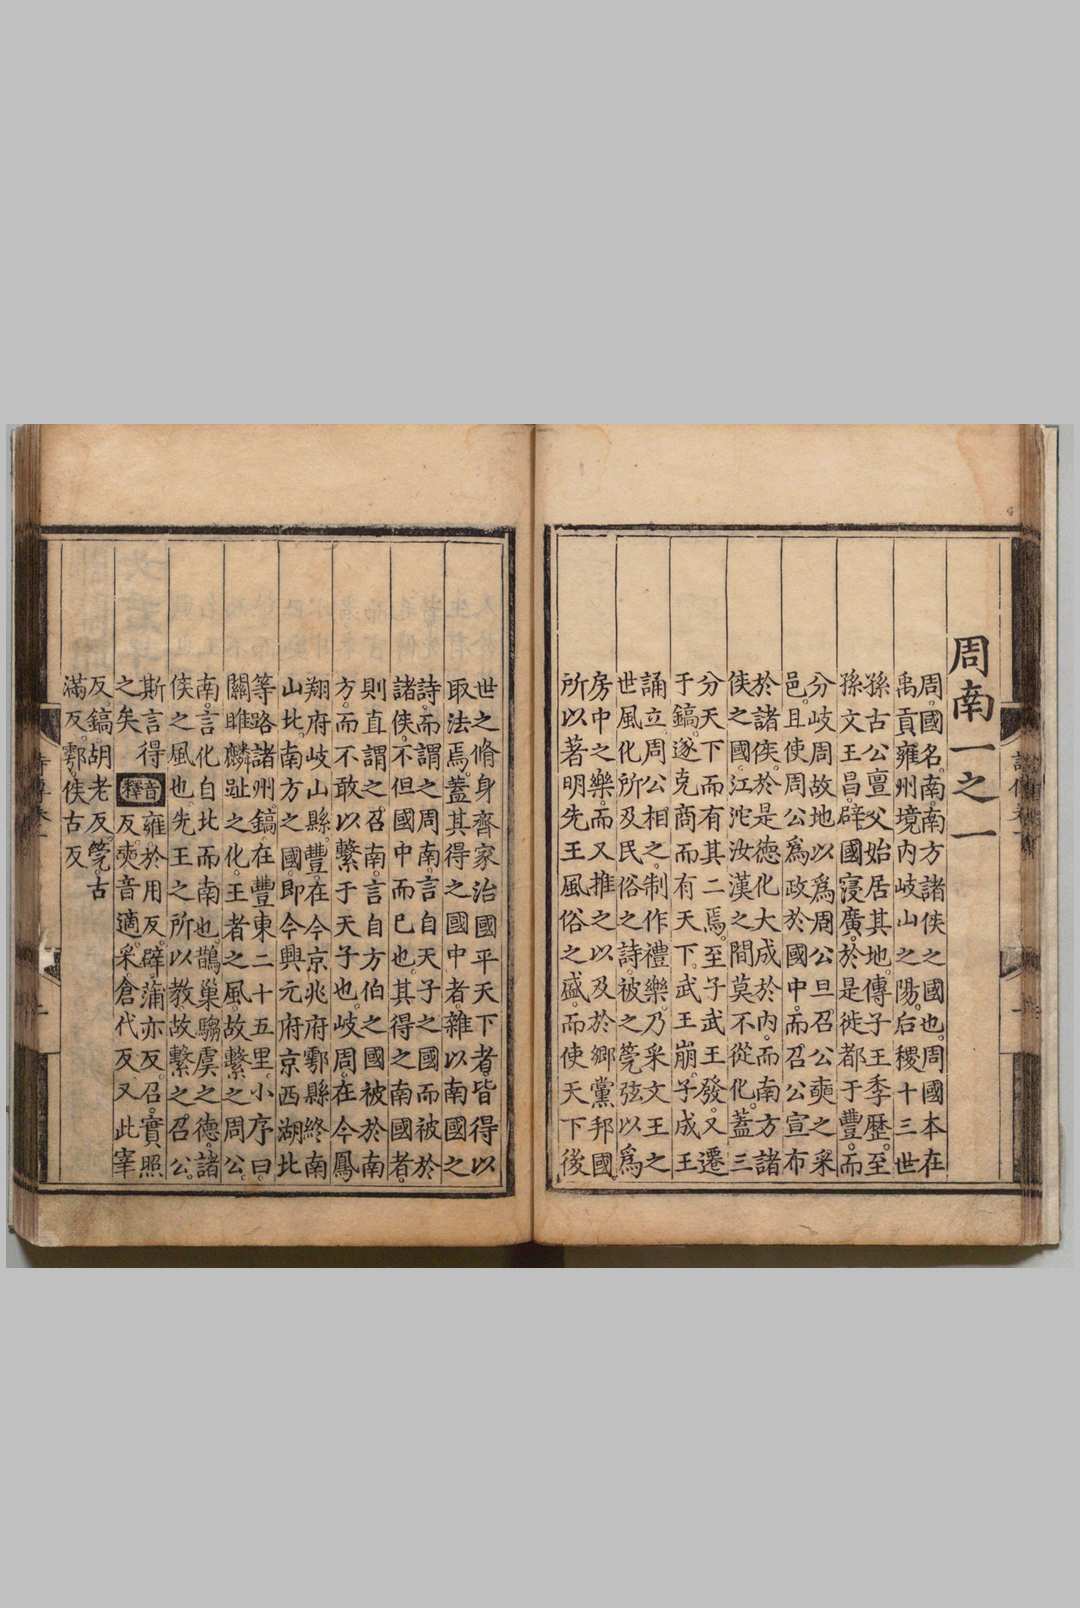 周南一之一
周國名。南南方諸侯之國也。周國本在
禹貢雍州境內岐山之陽。后稷十三世
孫古公亶父始居其地。傳子王季歷。至
孫文王昌。辟國寖廣。於是徙都于豐。而
分岐周故地以爲周公旦召公奭之采
邑。且使周公爲政於國中。而召公宣布
於諸侯。於是德化大成於內。而南方諸
侯之國。江沱汝漢之間。莫不從化。蓋三
分天下而有其二焉。至子武王發。又遷
于鎬。遂克商而有天下。武王崩。子成王
誦立。周公相之。制作禮樂。乃采文王之
世風化所及民俗之詩。被之筦弦。以爲
房中之樂。而又推之以及於鄉黨邦國。
所以著明先王風俗之盛。而使天下後
世之脩身齊家治國平天下者。皆得以
取法焉。蓋其得之國中者。雜以南國之
詩。而謂之周南。言自天子之國而被於
諸侯。不但國中而已也。其得之南國者。
則直謂之召南。言自方伯之國被於南
方。而不敢以繫于天子也。岐周。在今鳳
翔府岐山縣。豐。在今京兆府鄠縣終南
山北。南方之國。即今興元府京西湖北
等路諸州。鎬。在豐東二十五里。小序曰。
關雎麟趾之化。王者之風。故繫之周公。
南。言化自北而南也。鵲巢騶虞之德。諸
侯之風也。先王之所以教。故繫之召公。
斯言得
之矣
音釋
雍於用反。辟蒲亦反。召。實照
反。奭音適。采。倉代反。又此宰
反。鎬胡老反。筦。古
滿反。鄠。侯古反